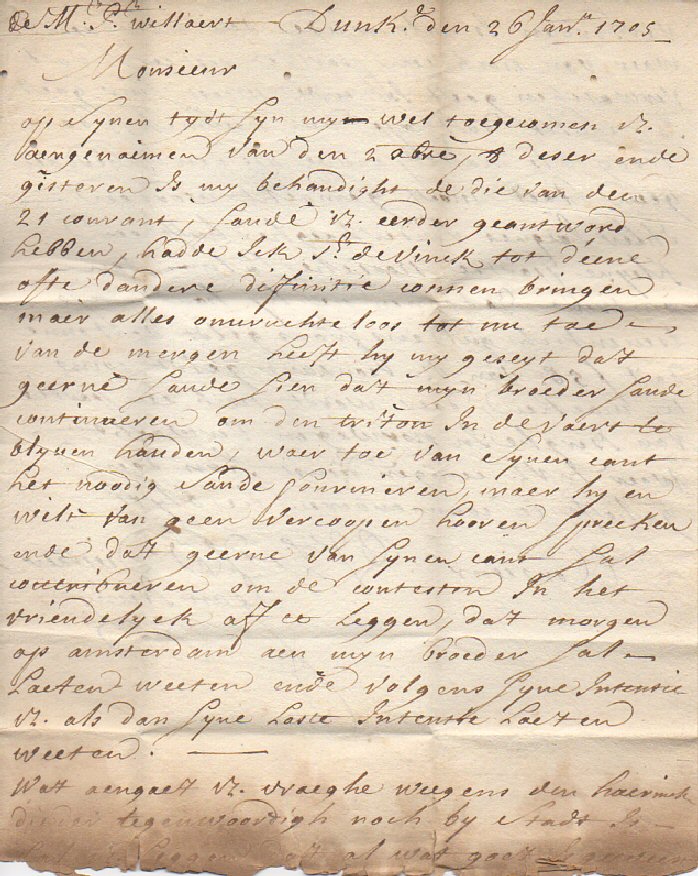 de Mr. Pr. willaert - Dunk.e den 26 Janr. 1705
Monsieur
op Synen tydt Syn my wel toegecomen V.
aengenaimen van den 2 abre, 8 deser ende
gisteren Is my behandight de die van den
21 courant, Saude V. eerder geantword
hebben, hadde Ick Sr. de Vinck tot d'eene
ofte d'andere difinitie connen bringen
maer alles onvruchteloos tot nu toe,
van de mergen heeft hy my geseyt dat
geerne Saude Sien dat myn broeder Saude
continueren om den triton In de vaert te
blyven hauden, waer toe van Synen cant
het noodig Saude fournieren, maer hy en
wilt van geen vercoopen hooren Sprecken
ende dat geerne van Synen cant Sal
contribueren om de contesten In het
vriendelyck aff te leggen, dat morgen
op amsterdam aen myn broeder Sal
Laeten weeten ende volgens Syne Intentie
V. als dan Syne Laste Intentie Laeten
weeten.
Wat aengaet V. vraeghe weegens den haerinck
dieder tegenwoordigh noch by Stadt Is
Sal Seggen dat al wat goet